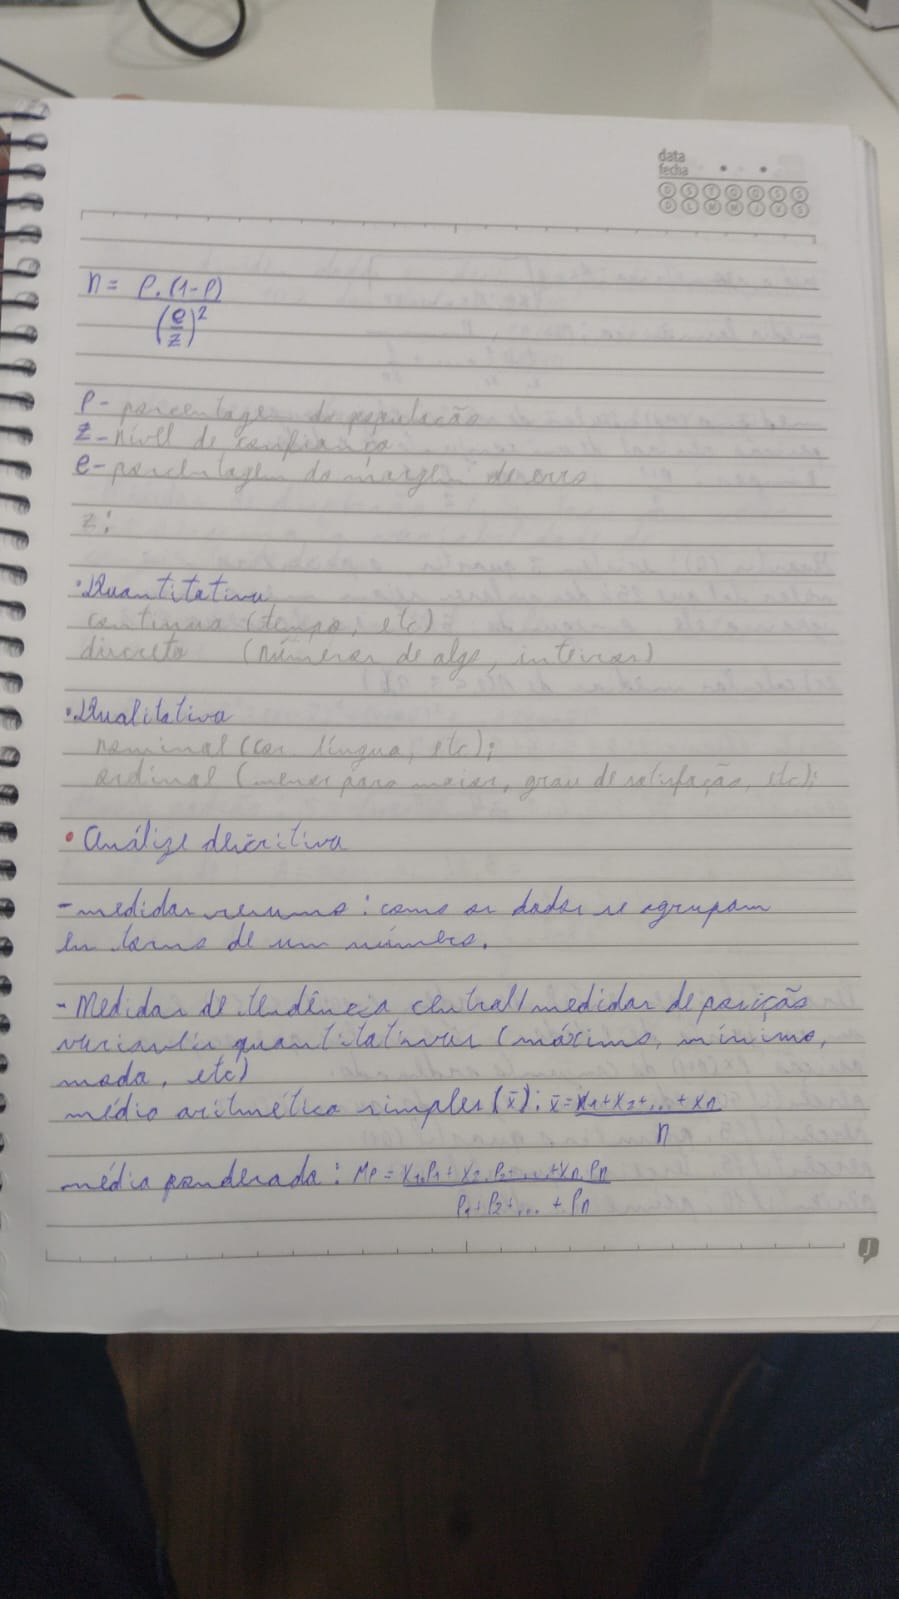 data
fecha
D S T Q Q S S
D L M M J V S
n = P.(1-P)
(e/z)²
P- porcentagem da população
Z- nível de confiança
e- porcentagem da margem de erro
z:
• Quantitativa
continua (tempo, etc)
discreta (números de algo, inteiros)
• Qualitativa
nominal (cor, língua, etc);
ordinal (menor para maior, grau de satisfação, etc);
• Análize descritiva
- medidas resumo: como os dados se agrupam
em torno de um número.
- Medidas de tendência central/medidas de posição
variavéis quantitativas (máximo, mínimo,
moda, etc)
média aritmética simples (x̄): x̄ = x1+x2+...+xn
n
média ponderada: Mp = x1.P1 + x2.P2+...+xn.Pn
P1+P2+... + Pn
J